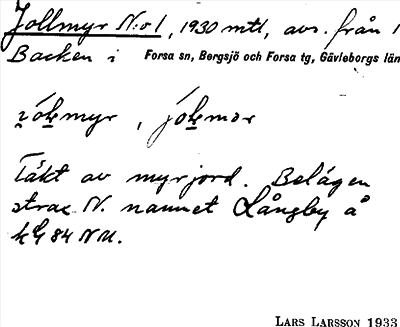 Jollmyr N:o 1, 1930 mtl, avs. från 1
Backen i Forsa sn, Bergsjö och Forsa tg, Gävleborgs län
myr,
Täkt av myrjord. Belägen
strax N. namnet Långby å
84 NM.
LARS LARSSON 1933